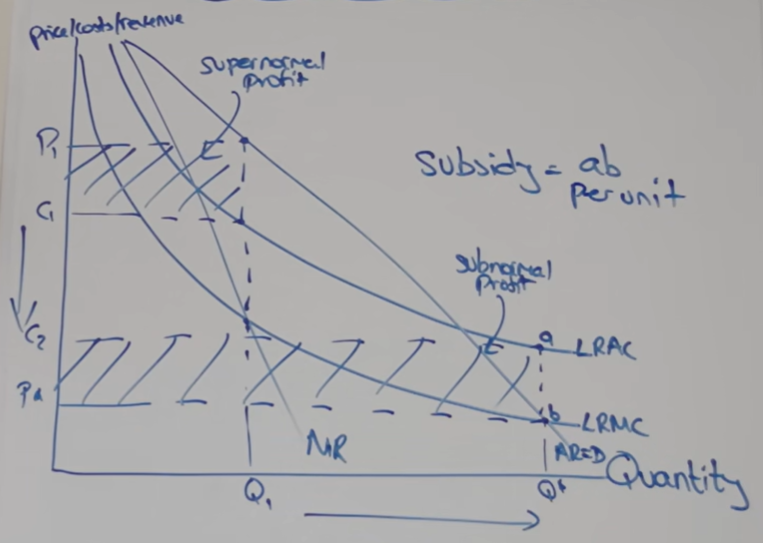 price/costs/revenue
supernormal
profit
P₁
Subsidy = ab
per unit
C₁
subnormal
profit
C₂
a
LRAC
b
LRMC
MR
AR=D
Quantity
Q₁